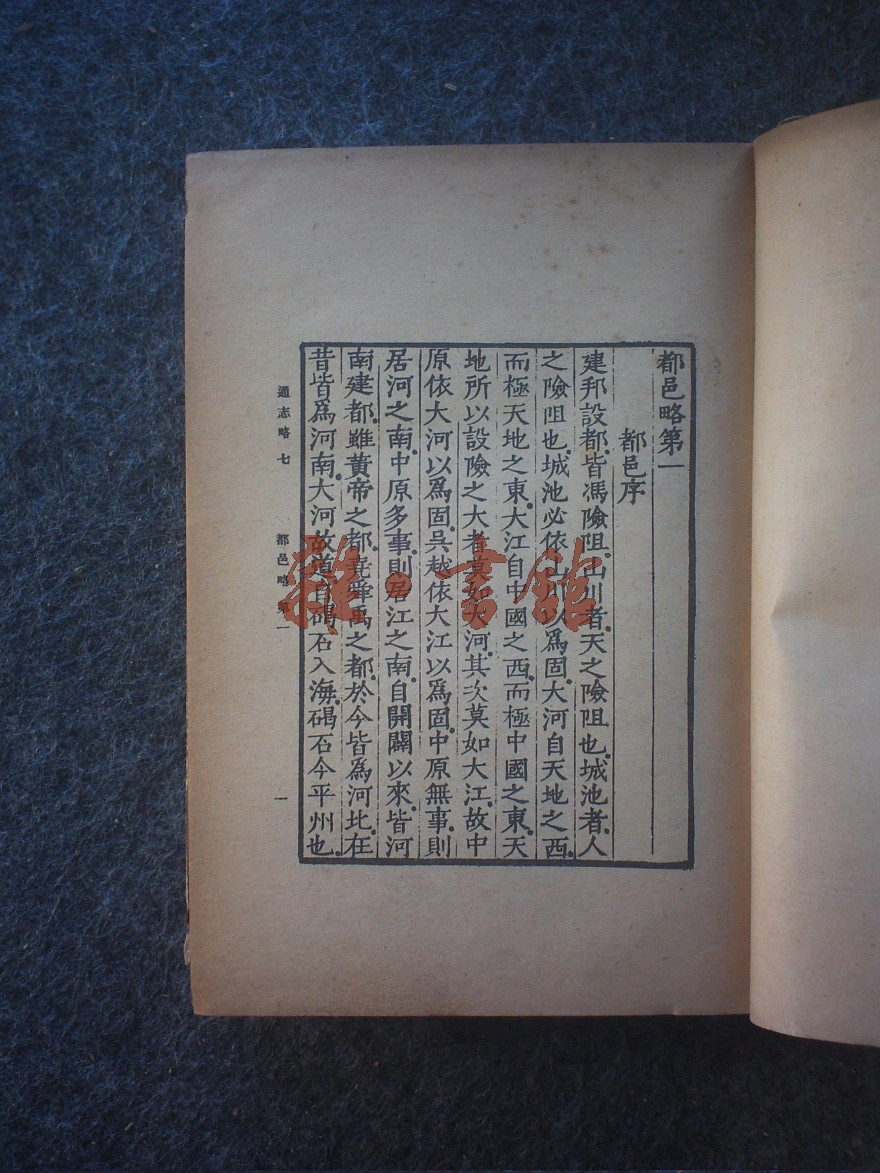 都邑略第一
都邑序
建邦設都。皆馮險阻。山川者。天之險阻也。城池者。人
之險阻也。城池必依山川以爲固。大河自天地之西。
而極天地之東。大江自中國之西。而極中國之東。天
地所以設險之大者。莫如大河。其次莫如大江。故中
原依大河以爲固。吳越依大江以爲固。中原無事。則
居河之南。中原多事。則居江之南。自開闢以來。皆河
南建都。雖黃帝之都。堯舜禹之都。於今皆爲河北。在
昔皆爲河南。大河故道自碣石入海。碣石今平州也。
通志略 七 都邑略 第一 一
雜·書館